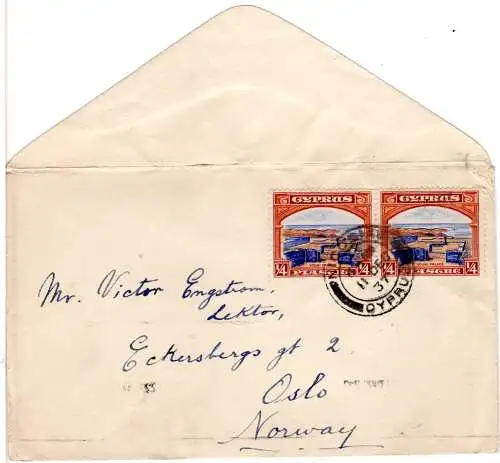 CYPRUS CYPRUS
VOUNI PALACE VOUNI PALACE
1/4 PIASTRE 1/4 1/4 PIASTRE 1/4
DEC
37
CYPRUS
Mr. Victor Engstrom,
Lektor,
Eckersbergs gt 2
Oslo
Norway